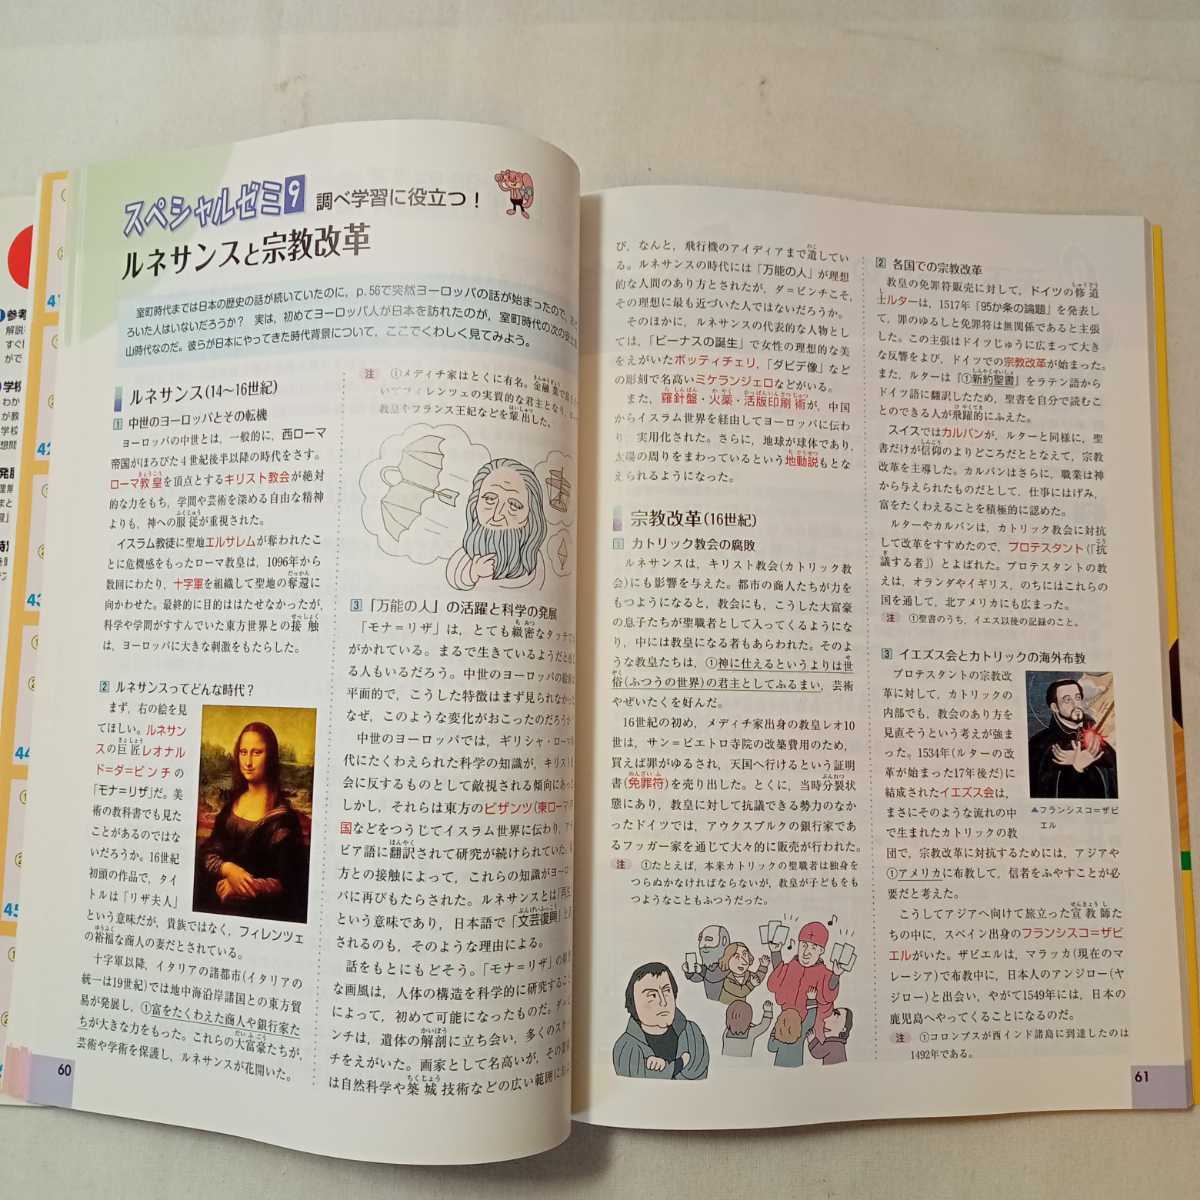 スペシャルゼミ9 調べ学習に役立つ!
ルネサンスと宗教改革
室町時代までは日本の歴史の話が続いていたのに,p.56で突然ヨーロッパの話が始まったので,
ろいた人はいないだろうか? 実は,初めてヨーロッパ人が日本を訪れたのが,室町時代の次の安土
山時代なのだ。彼らが日本にやってきた時代背景について,ここでくわしく見てみよう。
ルネサンス(14〜16世紀)
1 中世のヨーロッパとその転機
ヨーロッパの中世とは,一般的に,西ローマ
帝国がほろびた4世紀後半以降の時代をさす。
ローマ教皇を頂点とするキリスト教会が絶対
的な力をもち,学問や芸術を深める自由な精神
よりも,神への服従が重視された。
イスラム教徒に聖地エルサレムが奪われたこ
とに危機感をもったローマ教皇は,1096年から
数回にわたり,十字軍を組織して聖地の奪還に
向かわせた。最終的に目的ははたせなかったが,
科学や学問がすすんでいた東方世界との接触
は,ヨーロッパに大きな刺激をもたらした。
2 ルネサンスってどんな時代?
まず,右の絵を見
てほしい。ルネサン
スの巨匠レオナル
ド=ダ=ビンチの
「モナ=リザ」だ。美
術の教科書でも見た
ことがあるのではな
いだろうか。16世紀
初頭の作品で,タイ
トルは「リザ夫人」
という意味だが,貴族ではなく,フィレンツェ
の裕福な商人の妻だとされている。
十字軍以降,イタリアの諸都市(イタリアの
統一は19世紀)では地中海沿岸諸国との東方貿
易が発展し,①富をたくわえた商人や銀行家た
ちが大きな力をもった。これらの大富豪たちが,
芸術や学術を保護し,ルネサンスが花開いた。
60
注 ①メディチ家はとくに有名。金融業で
いてフィレンツェの実質的な君主となり,
教皇やフランス王妃などを輩出した。
3 「万能の人」の活躍と科学の発展
「モナ=リザ」は,とても緻密なタッチで
がかれている。まるで生きているようだと
る人もいるだろう。中世のヨーロッパの絵
平面的で,こうした特徴はまず見られなかっ
なぜ,このような変化がおこったのだろうか
中世のヨーロッパでは,ギリシャ・ローマ
代にたくわえられた科学の知識が,キリスト
会に反するものとして敵視される傾向にあっ
しかし,それらは東方のビザンツ(東ローマ
国などをつうじてイスラム世界に伝わり,ア
ビア語に翻訳されて研究が続けられていた。
方との接触によって,これらの知識がヨーロ
パに再びもたらされた。ルネサンスとは「再生」
という意味であり,日本語で「文芸復興」と
されるのも,そのような理由による。
話をもとにもどそう。「モナ=リザ」の
な画風は,人体の構造を科学的に研究するこ
によって,初めて可能になったものだ。ダ=
ンチは,遺体の解剖に立ち会い,多くのスケ
チをえがいた。画家として名高いが,その
は自然科学や築城技術などの広い範囲に
び,なんと,飛行機のアイディアまで遺してい
る。ルネサンスの時代には「万能の人」が理想
的な人間のあり方とされたが,ダ=ビンチこそ,
その理想に最も近づいた人ではないだろうか。
そのほかに,ルネサンスの代表的な人物とし
ては,「ビーナスの誕生」で女性の理想的な美
をえがいたボッティチェリ,「ダビデ像」など
の彫刻で名高いミケランジェロなどがいる。
また,羅針盤・火薬・活版印刷術が,中国
からイスラム世界を経由してヨーロッパに伝わ
り,実用化された。さらに,地球が球体であり,
太陽の周りをまわっているという地動説もとな
えられるようになった。
宗教改革(16世紀)
1 カトリック教会の腐敗
ルネサンスは,キリスト教会(カトリック教
会)にも影響を与えた。都市の商人たちが力を
もつようになると,教会にも,こうした大富豪
の息子たちが聖職者として入ってくるようにな
り,中には教皇になる者もあらわれた。そのよ
うな教皇たちは,①神に仕えるというよりは世
俗(ふつうの世界)の君主としてふるまい,芸術
やぜいたくを好んだ。
16世紀の初め,メディチ家出身の教皇レオ10
世は,サン=ピエトロ寺院の改築費用のため,
買えば罪がゆるされ,天国へ行けるという証明
書(免罪符)を売り出した。とくに,当時分裂状
態にあり,教皇に対して抗議できる勢力のなか
ったドイツでは,アウクスブルクの銀行家であ
るフッガー家を通じて大々的に販売が行われた。
注 ①たとえば,本来カトリックの聖職者は独身を
つらぬかなければならないが,教皇が子どもをも
つようなこともふつうだった。
2 各国での宗教改革
教皇の免罪符販売に対して,ドイツの修道
士ルターは,1517年「95か条の論題」を発表し
て,罪のゆるしと免罪符は無関係であると主張
した。この主張はドイツじゅうに広まって大き
な反響をよび,ドイツでの宗教改革が始まった。
また,ルターは「①新約聖書」をラテン語から
ドイツ語に翻訳したため,聖書を自分で読むこ
とのできる人が飛躍的にふえた。
スイスではカルバンが,ルターと同様に,聖
書だけが信仰のよりどころだととなえて,宗教
改革を主導した。カルバンはさらに,職業は神
から与えられたものだとして,仕事にはげみ,
富をたくわえることを積極的に認めた。
ルターやカルバンは,カトリック教会に対抗
して改革をすすめたので,プロテスタント(「抗
議する者」)とよばれた。プロテスタントの教
えは,オランダやイギリス,のちにはこれらの
国を通して,北アメリカにも広まった。
注 ①聖書のうち,イエス以後の記録のこと。
3 イエズス会とカトリックの海外布教
プロテスタントの宗教改
革に対して,カトリックの
内部でも,教会のあり方を
見直そうという考えが強ま
った。1534年(ルターの改
革が始まった17年後だ)に
結成されたイエズス会は,
まさにそのような流れの中
で生まれたカトリックの教
団で,宗教改革に対抗するためには,アジアや
①アメリカに布教して,信者をふやすことが必
要だと考えた。
▲フランシスコ=ザビ
エル
こうしてアジアへ向けて旅立った宣教師た
ちの中に,スペイン出身のフランシスコ=ザビ
エルがいた。ザビエルは,マラッカ(現在のマ
レーシア)で布教中に,日本人のアンジロー(ヤ
ジロー)と出会い,やがて1549年には,日本の
鹿児島へやってくることになるのだ。
注 ①コロンブスが西インド諸島に到達したのは
1492年である。
61